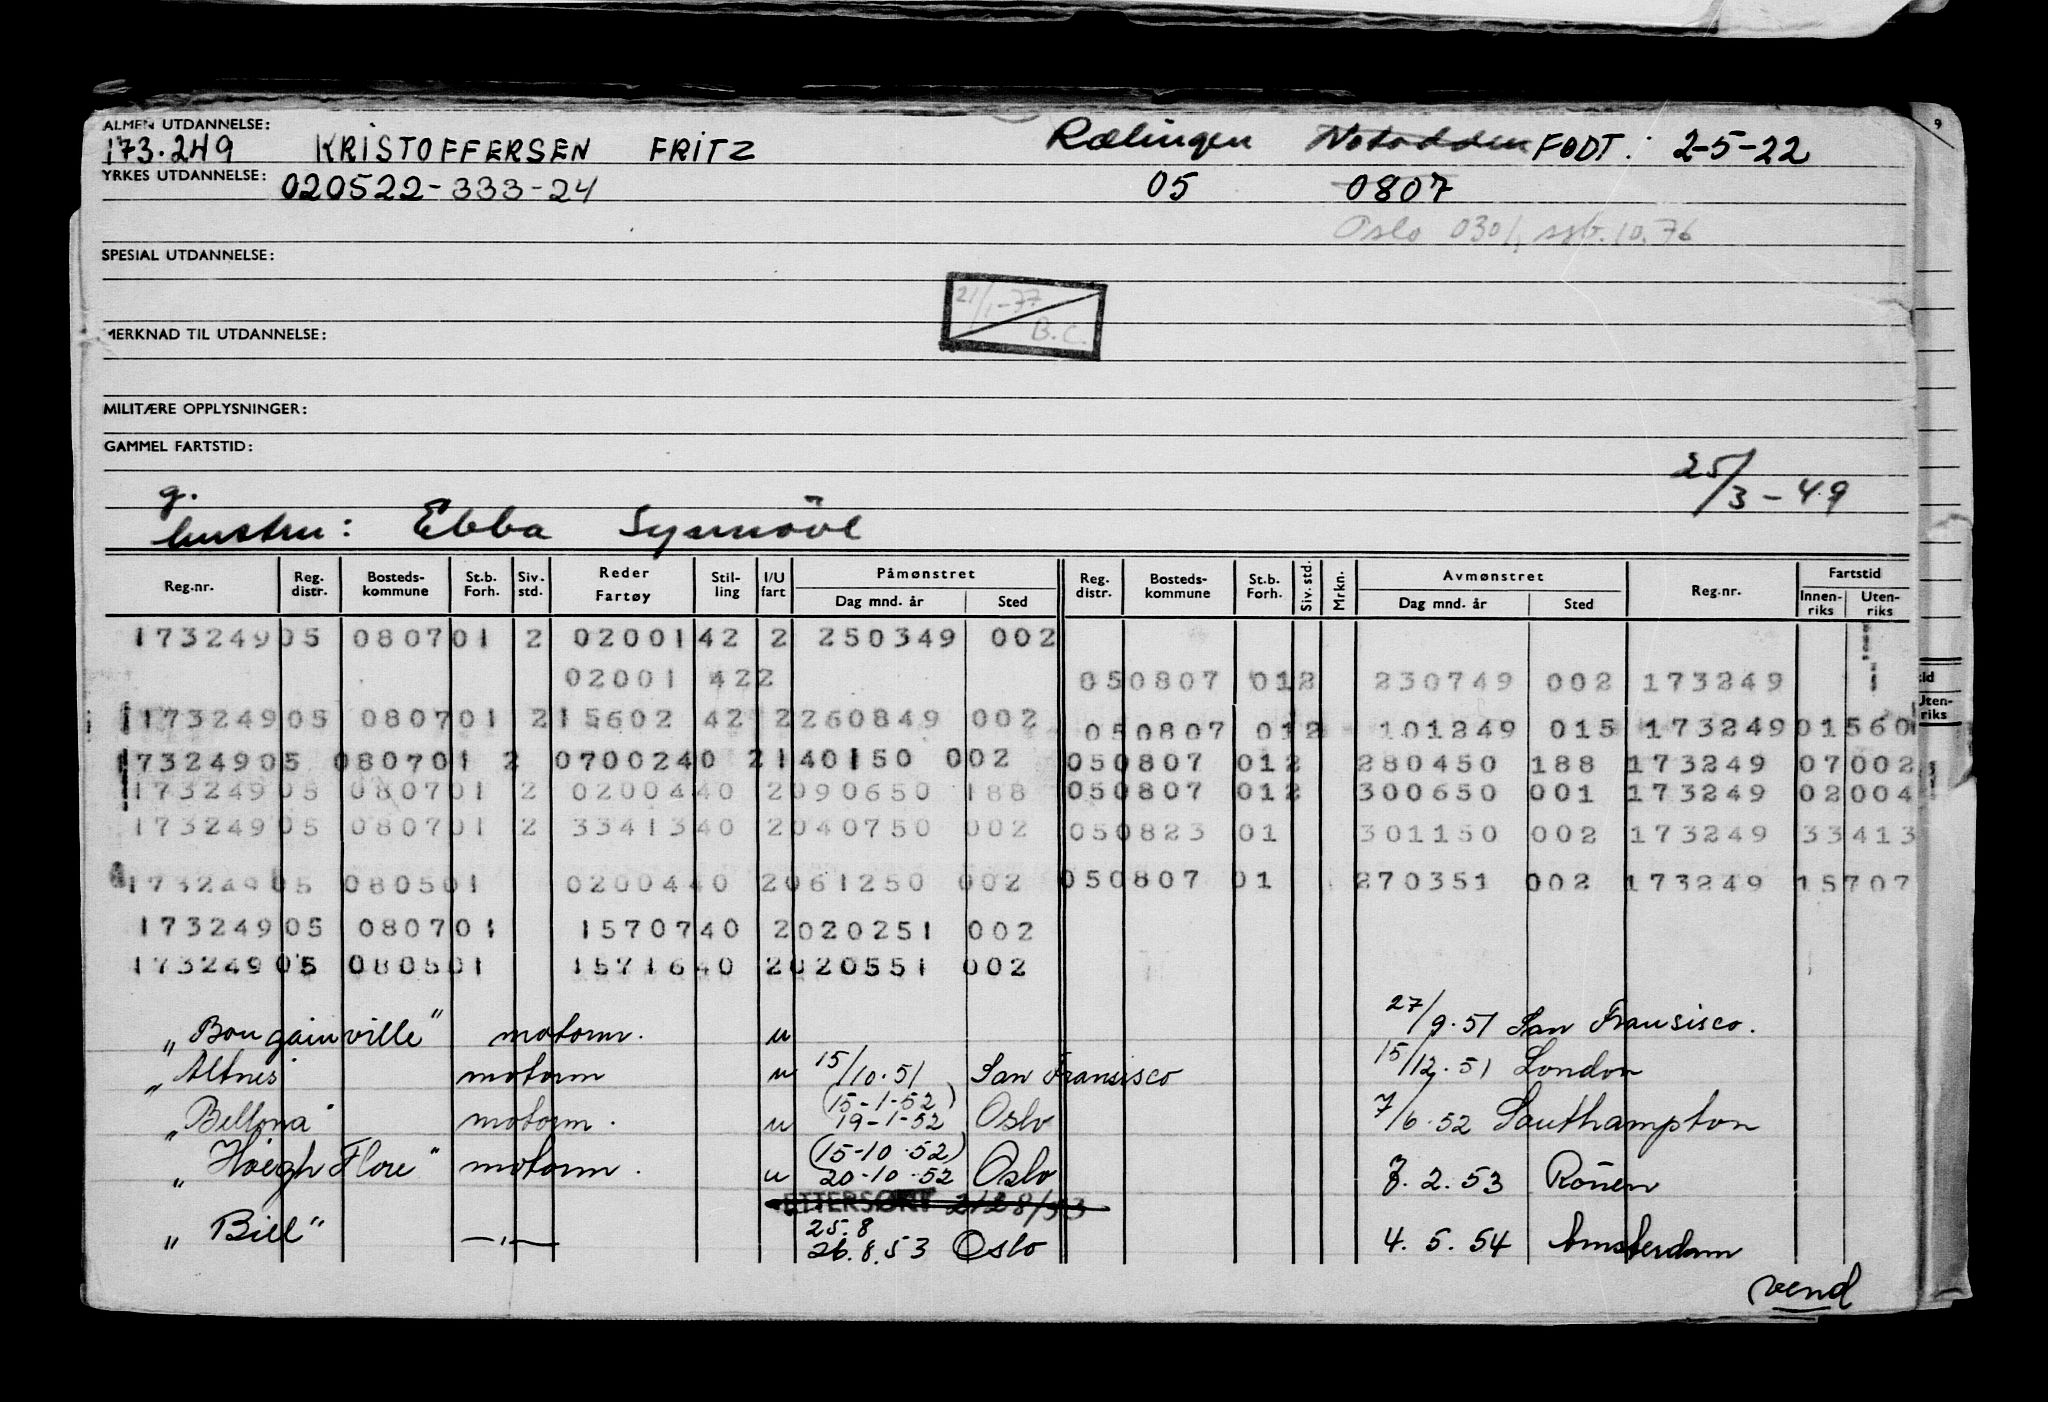 ALMEN UTDANNELSE:
173.249 KRISTOFFERSEN FRITZ Rælingen Notodden FØDT: 2-5-22
YRKES UTDANNELSE: 020522-333-24 05 0807
Oslo 0301, ssb. 10.76
SPESIAL UTDANNELSE:
21/1-77
B.C.
MERKNAD TIL UTDANNELSE:
MILITÆRE OPPLYSNINGER:
GAMMEL FARTSTID:
25/3-49
g.
hustru: Ebba Synnöve
Reg.nr. Reg. distr. Bosteds-kommune St.b. Forh. Siv. std. Reder Fartøy Stil-ling I/U fart Påmønstret Dag mnd. år Sted Reg. distr. Bosteds-kommune St.b. Forh. Siv. std. Mrkn. Avmønstret Dag mnd. år Sted Reg.nr. Fartstid Innen-riks Uten-riks
173249 05 0807 01 2 02001 42 2 250349 002
02001 42 2 05 0807 01 2 230749 002 173249
173249 05 0807 01 2 15602 42 2 260849 002 05 0807 01 2 101249 015 173249 01560
173249 05 0807 01 2 07002 40 2 140150 002 05 0807 01 2 280450 188 173249 07002
173249 05 0807 01 2 02004 40 2 090650 188 05 0807 01 2 300650 001 173249 02004
173249 05 0807 01 2 33413 40 2 040750 002 05 0823 01 301150 002 173249 33413
173249 05 0805 01 02004 40 2 061250 002 05 0807 01 270351 002 173249 15707
173249 05 0807 01 15707 40 2 020251 002
173249 05 0805 01 15716 40 2 020551 002
"Bougainville" motorm. u 27/9.51 San Fransisco.
"Altnes motorm u 15/10.51 San Fransisco 15/12.51 London
(15-1-52)
"Bellona" motorm. u 19-1-52 Oslo 7/6.52 Southampton
(15-10.52)
"Høegh Flore" motorm. u 20-10.52 Oslo 7.2.53 Rouen
ETTERSØKT 2128/53
25.8
"Bill" —"— 26.8.53 Oslo 4.5.54 Amsterdam
vend